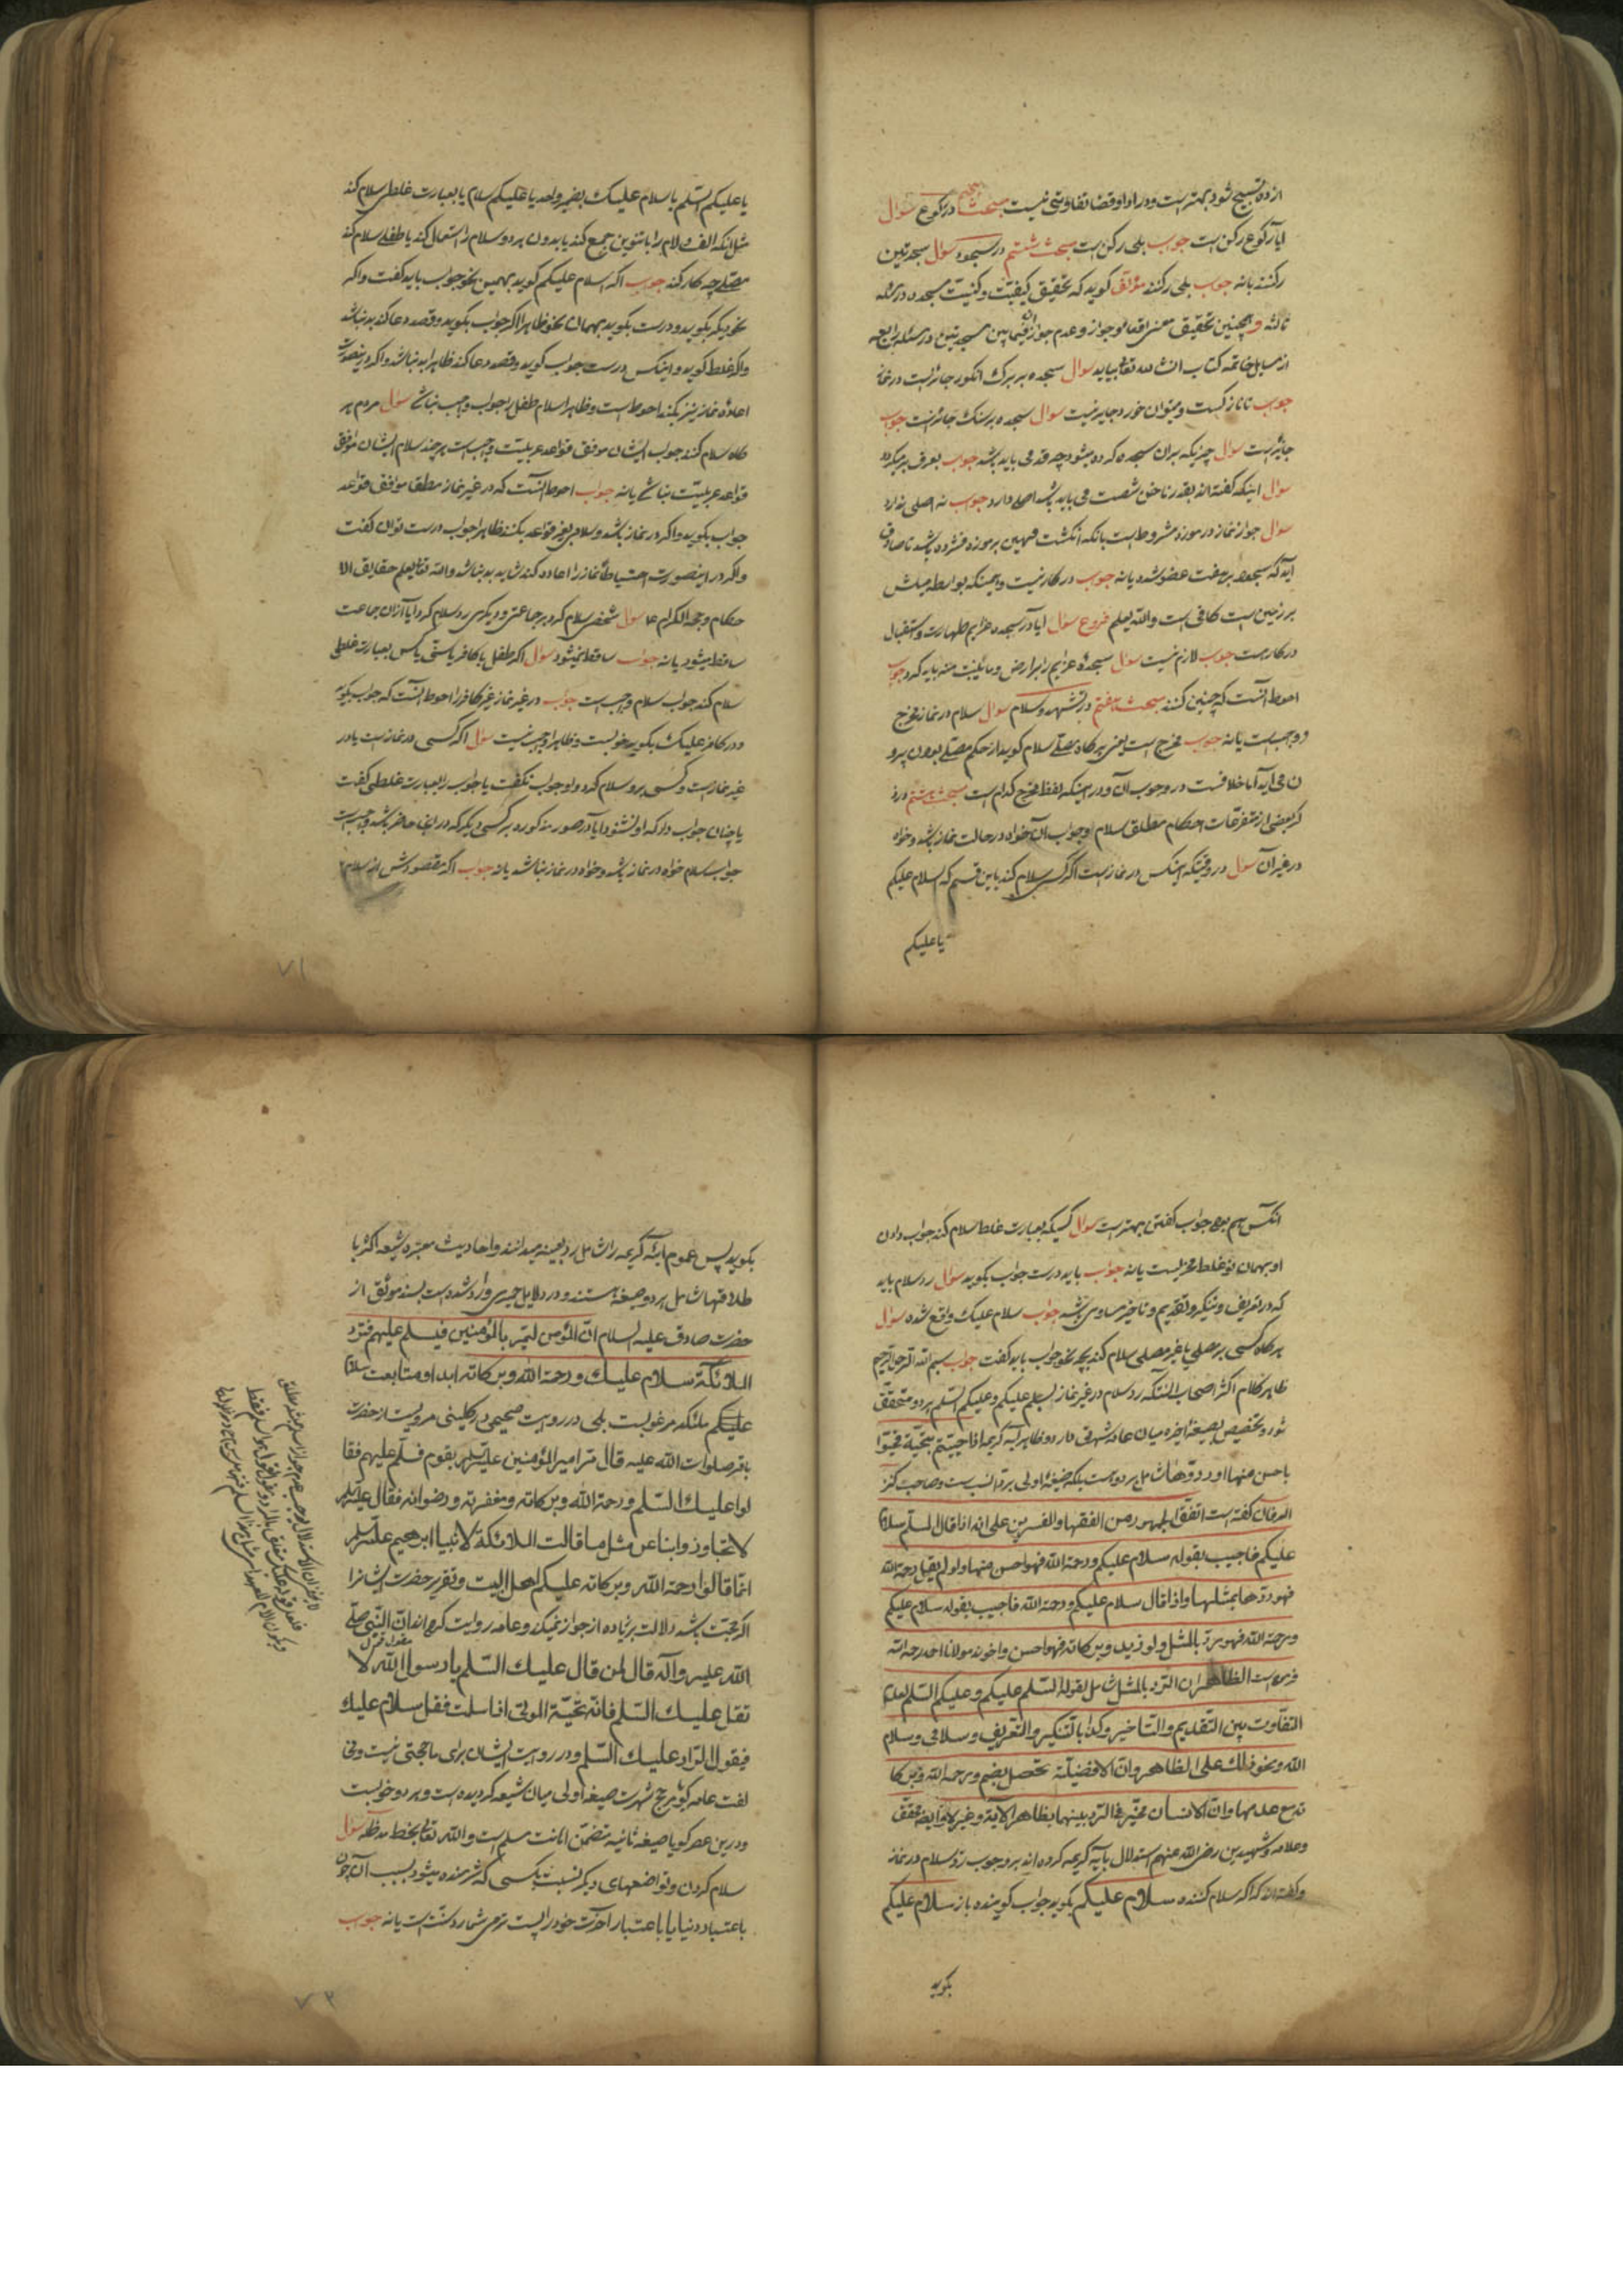 از ده تسبیح شود بهتر است و در ادا و قضا تفاوتی نیست مبحث پنجم در رکوع سؤال
ایا رکوع رکن است جواب بلی رکن است مبحث ششم در سجود سؤال سجدتین
رکنند یا نه جواب بلی رکنند مؤلف کوید که تحقیق کیفیت رکنیت سجده در مسئله
ثالثه و همچنین تحقیق معنی اقعا و جواز و عدم جواز آن فیما بین سجدتین در مسئله رابعه
از مسایل خاتمه کتاب انشاء الله تعالی بیاید سؤال سجده بر برک انکور جائز است در نماز
جواب تا تازکست و میتوان خورد جایز نیست سؤال سجده بر سنک جائز است جواب
جائز است سؤال چیزیکه بران سجده کرده میشود چه قدر می باید باشد جواب بعرف بر میکردد
سؤال اینکه کفته اند بقدر ناخن شصت می باید باشد اصلی دارد جواب نه اصلی ندارد
سؤال جواز نماز در موزه مشروط است بانکه انکشت مهین بر موزه فشرده باشد تا صادق
اید که سجود بر هفت عضو شده یا نه جواب در کار نیست و همینکه بواسطه میلش
بر زمین است کافی است و الله یعلم فروع سؤال ایا در سجده عزایم طهارت و استقبال
در کار هست جواب لازم نیست سؤال سجده عزایم را بر ارض و ما ینبت منه باید کرد جواب
احوط انست که چنین کنند مبحث هفتم در تشهد و سلام سؤال سلام در نماز مخرج
و واجب است یا نه جواب مخرج است یعنی هر کاه مصلی سلام کوید از حکم مصلی بودن بیرو
ن می آید اما خلافست در وجوب آن و در اینکه لفظ مخرج کدام است مبحث هشتم در ذ
کر بعضی از متفرقات احکام مطلق سلام و جواب آن خواه در حالت نماز باشد و خواه
در غیر آن سؤال در وقتیکه اینکس در نماز است اکر کسی سلام کند باین قسم که السلام علیکم
یا علیکم
یا علیکم السلم یا سلام علیک بضمیر واحد یا علیکم سلام یا بعبارت غلطی سلام کند
مثل انکه الف و لام را با تنوین جمع کند یا بدون هر دو سلام را استعمال کند یا طفلی سلام کند
مصلی چه کار کند جواب اکر السلام علیکم کوید بهمین نحو جواب باید کفت و اکر
نحو دیکر بکوید و درست بکوید بهمان نحو ظاهرا اکر جواب بکوید و قصد دعا کند بد نباشد
و اکر غلط کوید و اینکس درست جواب کوید و قصد دعا کند ظاهرا بد نباشد و اکر در ینصورت
اعاده نماز نیز بکند احوط است و ظاهرا سلام طفل را جواب واجب نباشد سؤال مردم هر
کاه سلام کنند جواب ایشان موفق قواعد عربیت واجب است هر چند سلام ایشان موافق
قواعد عربیت نباشد یا نه جواب احوط انست که در غیر نماز مطلقا موافق قواعد
جواب بکوید و اکر در نماز باشد و سلام بغیر قواعد بکنند ظاهرا جواب درست توان کفت
و اکر در اینصورت احتیاطا نماز را اعاده کند شاید بد نباشد و الله تعالی یعلم حقایق الا
حکام و حججه الکرام عا سؤال شخصی سلام کرد بر جماعتی و دیکری رد سلام کرد ایا از ان جماعت
ساقط میشود یا نه جواب ساقط نمیشود سؤال اکر طفل یا کافر یا سنی یا کسی بعبارت غلطی
سلام کند جواب سلام واجب است جواب در غیر نماز غیر کافر را احوط انست که جواب بکوید
و در کافر علیک بکوید خوبست و ظاهرا واجب نیست سؤال اکر کسی در نماز است یا در
غیر نماز است و کسی برو سلام کرد و او جواب نکفت یا جواب را بعبارت غلطی کفت
یا چنان جواب داد که او نشنود ایا در صور مذکوره بر کسی دیکر که در اینجا حاضر باشد واجب است
جواب سلام خواه در نماز باشد و خواه در نماز نباشد یا نه جواب اکر مقصودش از سلام
۷۱
انکس هم بود جواب کفتن بهتر است سؤال کسیکه بعبارت غلط سلام کند جواب دادن
او بهمان نحو غلط مجزیست یا نه جواب باید درست جواب بکوید سؤال رد سلام باید
که در تعریف و تنکیر و تقدیم و تاخیر مساوی باشد جواب سلام علیک واقع شده سؤال
هر کاه کسی بر مصلی یا غیر مصلی سلام کند بچه نحو جواب باید کفت جواب بسم الله الرحمن الرحیم
ظاهر کلام اکثر اصحاب انستکه رد سلام در غیر نماز بسلام علیکم و علیکم السلم هر دو متحقق
شود و تخصیص بصیغه اخیره میان عامه شهرتی دارد و ظاهر آیه کریمه اذا حییتم بتحیة فحیوا
باحسن منها او ردوها شامل هر دو است بلکه صیغه اولی برد انسب است و صاحب کنز
العرفان کفته است اتفق الجمهور من الفقهاء و المفسرین علی انه اذا قال المسلم سلام
علیکم فاجیب بقوله سلام علیکم و رحمة الله فهو احسن منها و لو لم یقل رحمة الله
فهو ردها بمثلها و اذا قال سلام علیکم و رحمة الله فاجیب بقوله سلام علیکم
و رحمة الله فهو رد بالمثل و لو زید و برکاته فهو احسن و اخوند مولانا احمد رحمه الله
فرموده است الظاهر ان الرد بالمثل شامل لقوله السلم علیکم و علیکم السلم لعدم
التفاوت بین التقدیم و التاخیر و کذا بالتنکیر و التعریف و سلامی و سلام
الله و نحو ذلک علی الظاهر و ان الافضلیة تحصل بضم و رحمة الله و برکا
ته مع عدمها و ان الانسان مخیر فی الرد بینهما بظاهر الآیة و غیرها ایضا محقق
و علامه و شهیدین رضی الله عنهم استدلال بآیه کریمه کرده اند بر وجوب رد سلام در نماز
و کفته اند که اکر سلام کننده سلام علیکم بکوید جواب کوینده باز سلام علیکم
بکوید
بکوید پس عموم آیه کریمه را شامل رد بعینه میدانند و احادیث معتبره شیعه اکثر با
طلاقها شامل هر دو صیغه هستند و در دلایل حمیری وارد شده است بسند موثق از
حضرت صادق علیه السلام ان المؤمن لیمر بالمؤمنین فیسلم علیهم فترد
الملائکة سلام علیک و رحمة الله و برکاته ابدا و متابعت سلام
علیکم ملئکه مرغوبست بلی در روایت صحیحی در کلینی مرویست از حضرت
باقر صلوات الله علیه قال مر امیر المؤمنین علیه السلم بقوم فسلم علیهم فقا
لوا علیک السلم و رحمة الله و برکاته و مغفرته و رضوانه فقال علیه السلم
لا تجاوزوا بنا عن مثل ما قالت الملائکة لابینا ابرهیم علیه السلم
انما قالوا رحمة الله و برکاته علیکم اهل البیت و تقریر حضرت ایشانرا
اکر حجت باشد دلالت بزیاده از جواز نمیکند و عامه روایت کرده اند ان النبی صلی
الله علیه و آله قال لمن قال علیک السلم یا رسول الله لا
تقل علیک السلم فانه تحیة الموتی اذا سلمت فقل سلام علیک
فیقول الراد علیک السلم و در روایت ایشان برای ما حجتی نیست و مخا
لفت عامه کویا مرجح شهرت صیغه اولی میان شیعه کردیده است و هر دو خوبست
و درین عصر کویا صیغه ثانیه متضمن اهانت مسلم است و الله تعالی بخط مد ظله سؤال
سلام کردن و تواضعهای دیکر نسبت بکسی که شرمنده میشود بسبب آن چون
باعتبار دنیا یا باعتبار آخرت خود را پست تر می شمارد سنت است یا نه جواب
۷۲